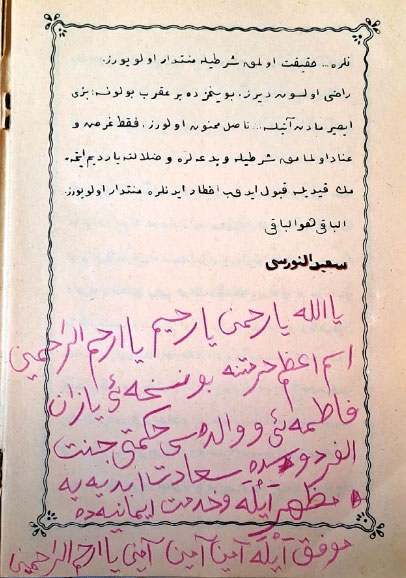 نلره... حقیقت اولمق شرطیله منتدار اولویورز.
راضی اولسون دیرز. بوینمزده بر عقرب بولونه؛ بزی
ایصیرمادن آتیله... ناصل ممنون اولورز. فقط غرض و
عناد اولمامق شرطیله و بدعه لره و ضلالته یاردیم ایتمه
مك قیدیله قبول ایدوب اخطار ایدنلره منتدار اولویورز.
الباقی هو الباقی
سعید النورسی
یا الله یا رحمن یا رحیم یا ارحم الراحمین
اسم اعظم حرمتنه بو نسخه ئی یازان
فاطمه ئی و والده سی حکمتی جنت
الفردوسده سعادت ابدیه یه
مظهر آیله و خدمت ایمانیه ده
موفق آیله آمین آمین آمین یا ارحم الراحمین